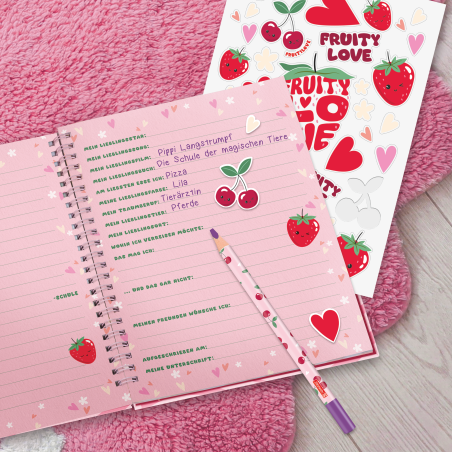 FRUITY
LOVE
FRUITLOVE
FRUITY
LO
VE
FRUITY
LOVE
MEIN LIEBLINGSSTAR:
MEIN LIEBLINGSSONG:
MEIN LIEBLINGSFILM: Pippi Langstrumpf
MEIN LIEBLINGSBUCH: Die Schule der magischen Tiere
AM LIEBSTEN ESSE ICH: Pizza
MEINE LIEBLINGSFARBE: Lila
MEIN TRAUMBERUF: Tierärztin
MEIN LIEBLINGSTIER: Pferde
MEIN LIEBLINGSORT:
WOHIN ICH VERREISEN MÖCHTE:
DAS MAG ICH:
-SCHULE
... UND DAS GAR NICHT:
MEINEN FREUNDEN WÜNSCHE ICH:
AUFGESCHRIEBEN AM:
MEINE UNTERSCHRIFT: